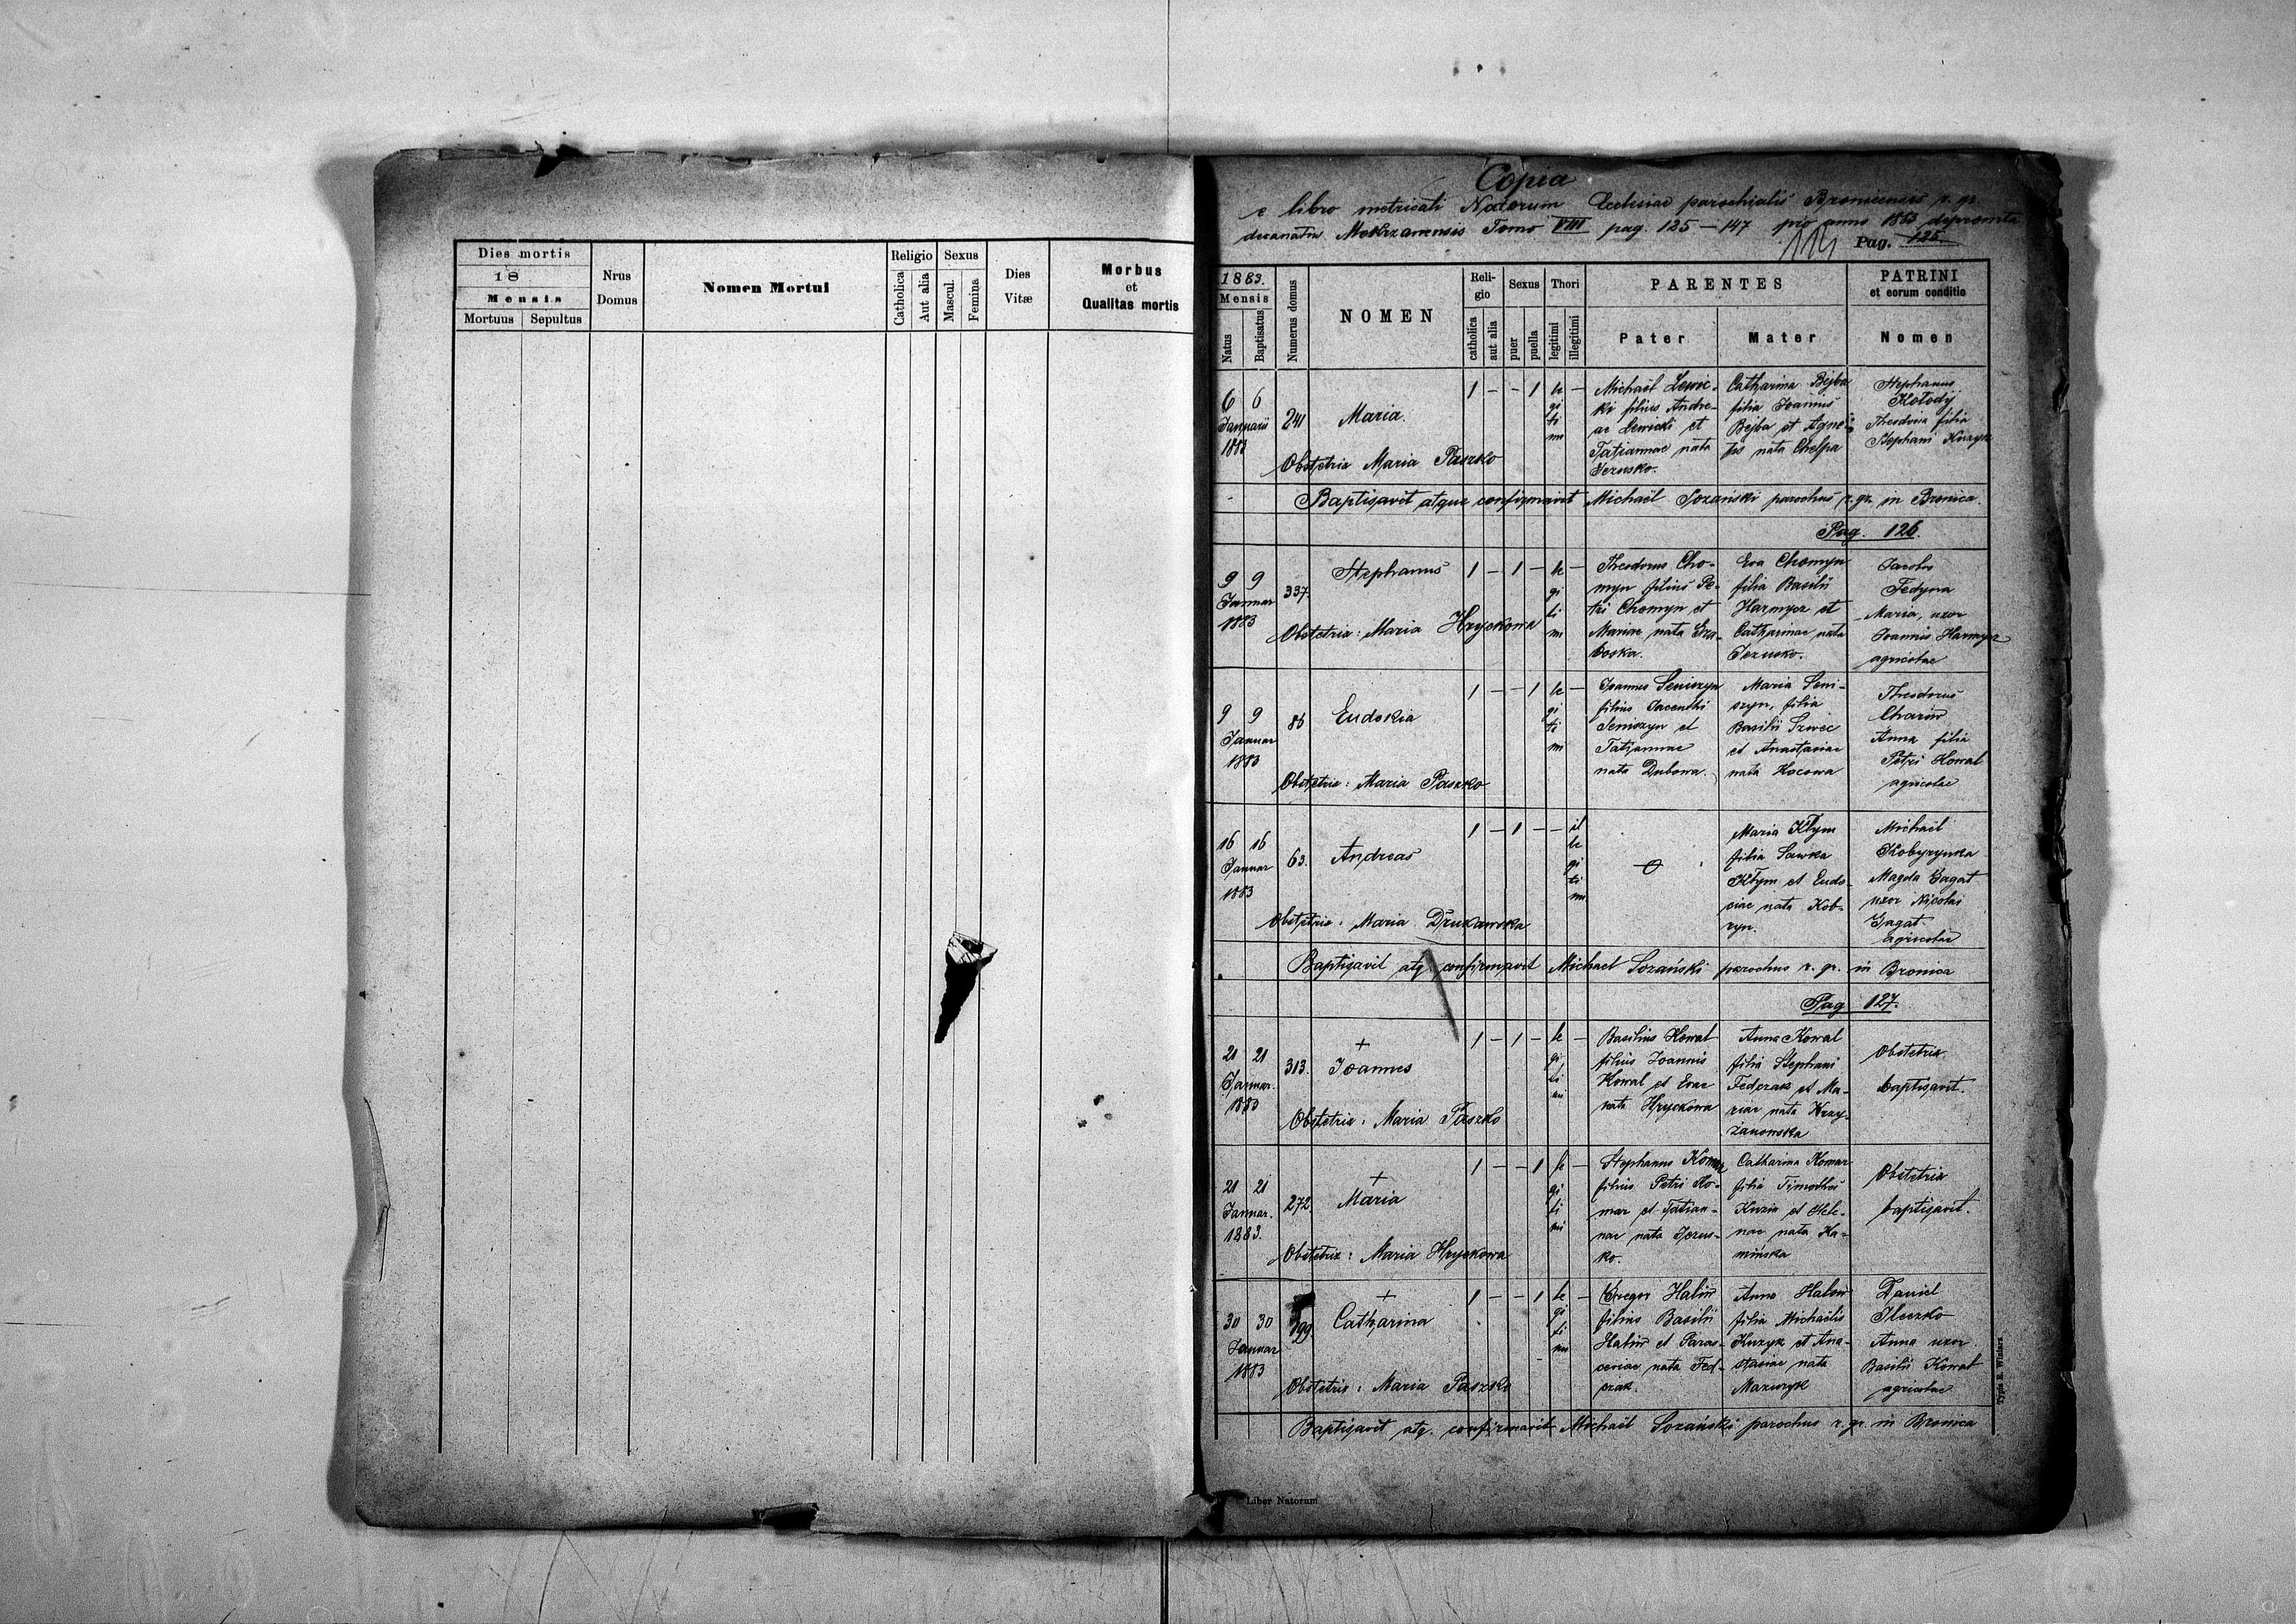 Dies mortis
18
Mensis
Mortuus
Sepultus
Nrus
Domus
Nomen Mortui
Religio
Catholica
Aut alia
Sexus
Mascul.
Femina
Dies
Vitæ
Morbus
et
Qualitas mortis
Copia
e libro metricali Natorum Ecclesiae parochialis Bronicensis r. gr.
decanatu Mokrzanensis Tomo VIII pag. 125 – 147 pro anno 1883 deprompta
Pag. 125
1883.
Mensis
Natus
Baptisatus
Numerus domus
NOMEN
Reli-
gio
catholica
aut alia
Sexus
puer
puella
Thori
legitimi
illegitimi
PARENTES
Pater
Mater
PATRINI
et eorum conditio
Nomen
6 6
Januarii
1883
241
Maria.
Obstetrix Maria Paszko
1 – – 1
le
gi
ti
mi
–
Michaël Lewic-
ki filius Andre-
ae Lewicki et
Tatiannae nata
Jezusko.
Catharina Bejba
filia Joannis
Bejba et Agne-
tis nata Chełpa
Stephanus
Kołodij
Theodosia filia
Stephani Kuzyk
Baptisavit atque confirmavit Michaël Sozański parochus r. gr. in Bronica.
Pag. 126.
9 9
Januar
1883
337.
Stephanus
Obstetrix: Maria Hryckowa
1 – 1 –
le
gi
ti
mi
–
Theodorus Cho-
myn filius Pe-
tri Chomyn et
Mariae nata Gra-
boska.
Eva Chomyn
filia Basilii
Harmycz et
Catharinae nata
Jezusko.
Jacobus
Fedyna
Maria, uxor
Joannis Harmycz
agricolae
9 9
Januar
1883
86
Eudokia
Obstetrix: Maria Paszko
1 – – 1
le
gi
ti
mi
–
Joannes Seniszyn
filius Jacenthi
Seniszyn et
Tatjannae
nata Dubowa.
Maria Seni-
szyn, filia
Basilii Szwec
et Anastasiae
nata Kocowa
Theodorus
Chariw
Anna filia
Petri Kowal
agricolae
16 16
Januar
1883
63.
Andreas
Obstetrix: Maria Drukawska
1 – 1 – –
il
le
gi
ti
mi
Maria Kłym
filia Sawka
Kłym et Eudo-
ciae nata Kob-
ryn.
Michaël
Kobyrynka
Magda Gagat
uxor Nicolai
Gagat
agricolae
Baptisavit atq. confirmavit Michael Sozański parochus r. gr. in Bronica
Pag 127.
21 21
Januar.
1883
313.
+
Joannes
Obstetrix: Maria Paszko
1 – 1 –
le
gi
ti
mi
–
Basilius Kowal
filius Joannis
Kowal et Evae
nata Hryckowa
Anna Kowal
filia Stephani
Fedczak et Ma-
riae nata Krzy-
żanowska
Obstetrix
baptisavit.
21 21
Januar.
1883.
272
+
Maria
Obstetrix: Maria Hryckowa
1 – – 1
le
gi
ti
mi
–
Stephanus Komar
filius Petri Ko-
mar et Tatian-
nae nata Jezus-
ko.
Catharina Komar
filia Timothei
Kuzia et Hele-
nae nata Ka-
mińska
Obstetrix
baptisavit.
30 30
Januar
1883
199
+
Catharina
Obstetrix: Maria Paszko
1 – – 1
le
gi
ti
mi
–
Gregor Haliw
filius Basilii
Haliw et Paras-
ceviae nata Fed-
czak.
Anna Haliw
filia Michaëlis
Kuzyk et Ana-
stasiae nata
Mazuryk
Daniel
Ileczko
Anna uxor
Basilii Kowal
agricolae
Baptisavit atq. confirmavit Michaël Sozański parochus r. gr. in Bronica
Typis E. Winiarz
Liber Natorum